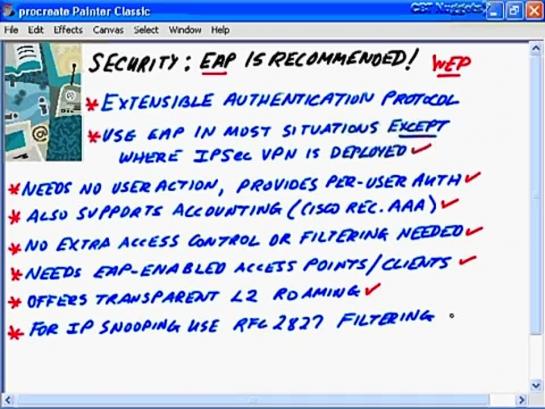 procreate Painter Classic
CBT Nuggets
File Edit Effects Canvas Select Window Help
SECURITY: EAP IS RECOMMENDED! WEP
* EXTENSIBLE AUTHENTICATION PROTOCOL
* USE EAP IN MOST SITUATIONS EXCEPT
WHERE IPSec VPN IS DEPLOYED ✓
* NEEDS NO USER ACTION, PROVIDES PER-USER AUTH ✓
* ALSO SUPPORTS ACCOUNTING (CISCO REC. AAA) ✓
* NO EXTRA ACCESS CONTROL OR FILTERING NEEDED ✓
* NEEDS EAP-ENABLED ACCESS POINTS/CLIENTS ✓
* OFFERS TRANSPARENT L2 ROAMING ✓
* FOR IP SNOOPING USE RFC 2827 FILTERING